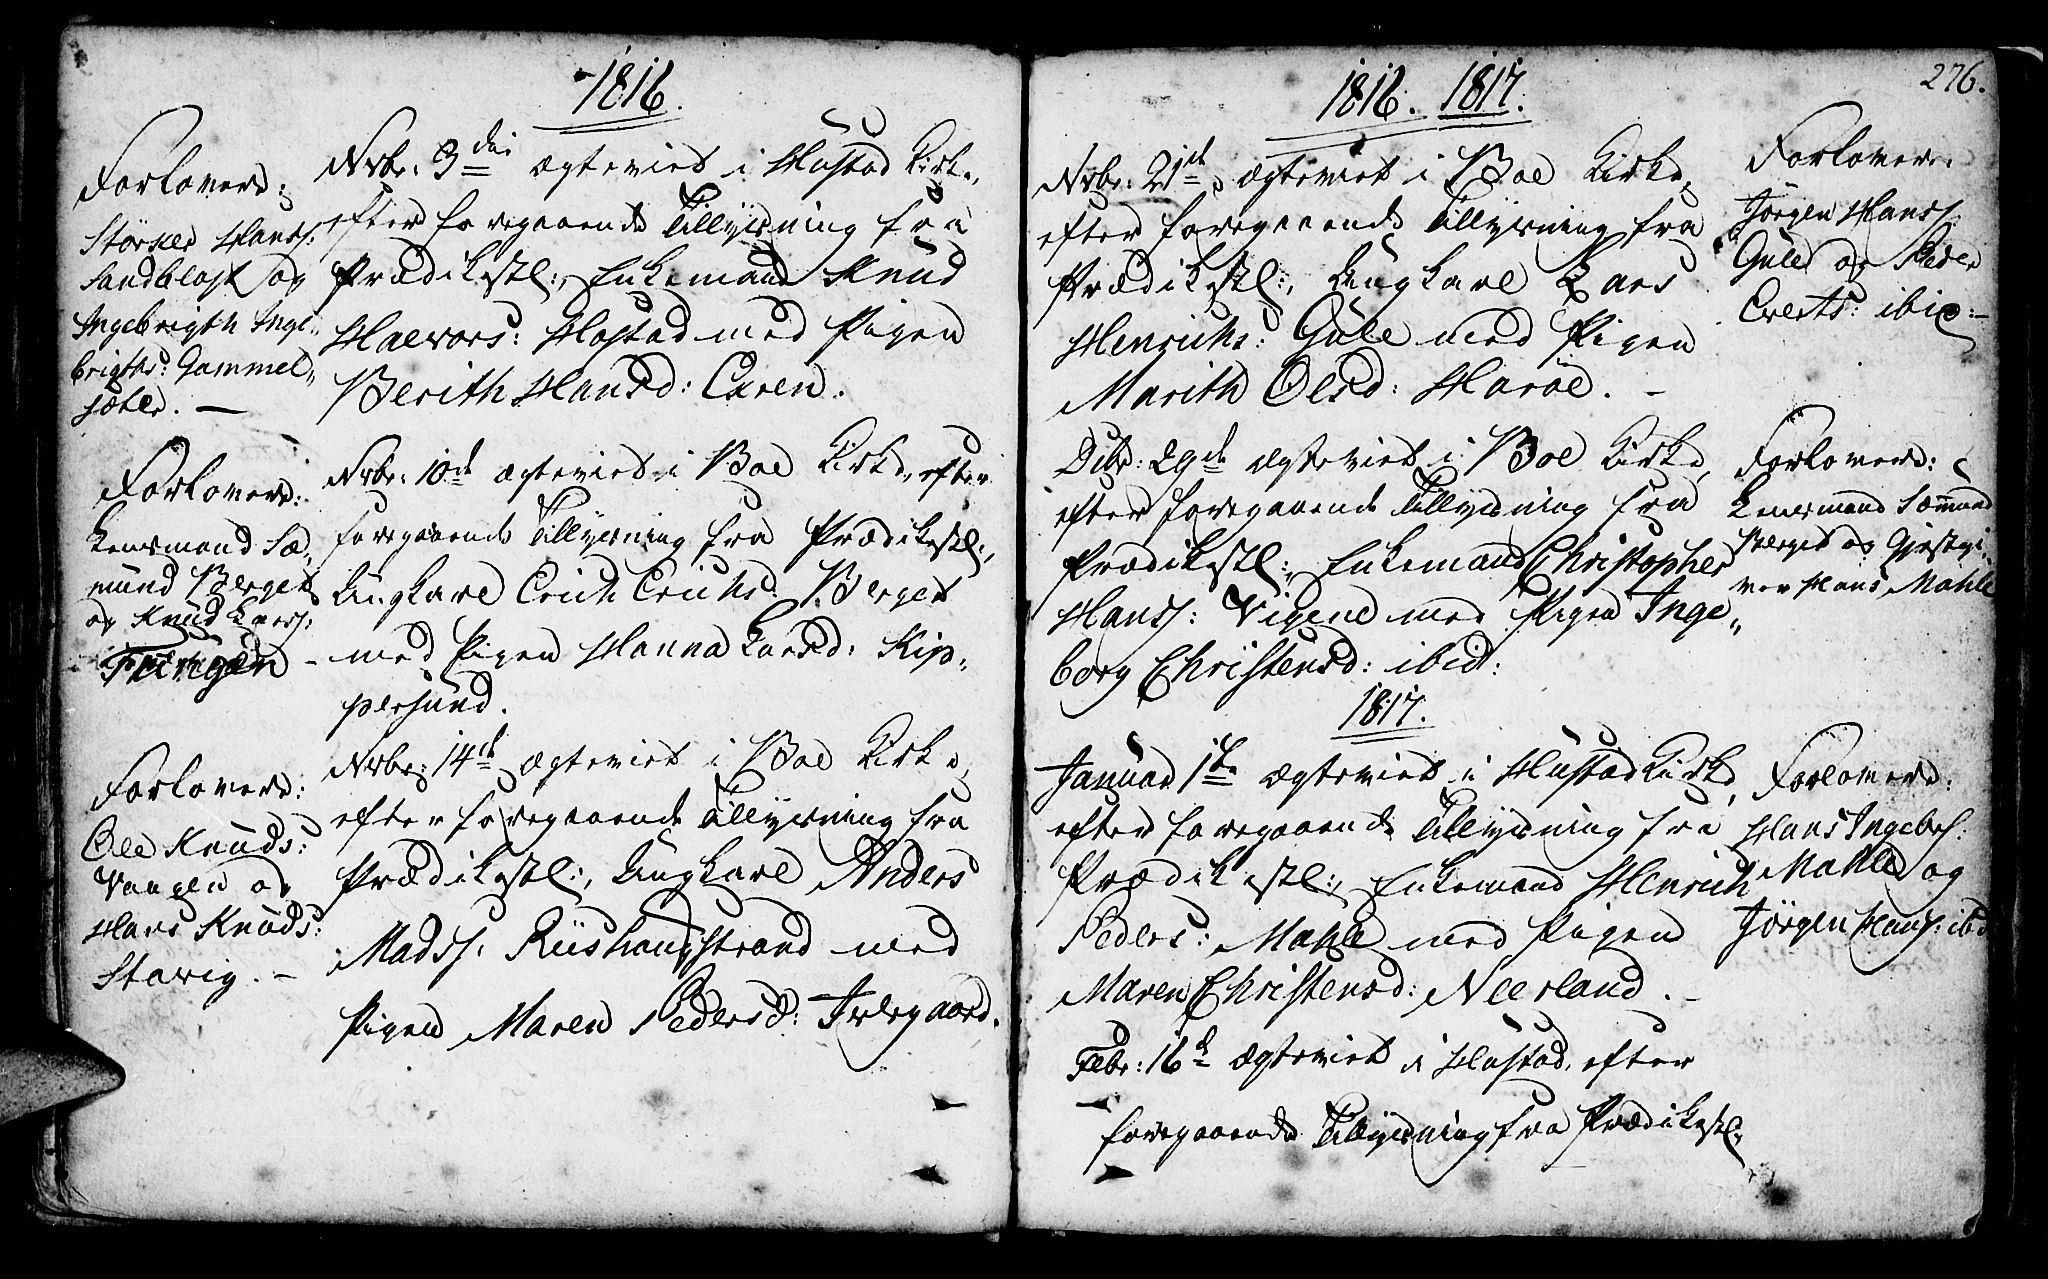 1816.
Forlovere:
Størker Hanss:
Sandblost og
Ingebrigth Inge„
brigths: Gammel„
sæter. —
Nvbr: 3die ægteviet i Hustad Kirke,
efter foregaaende Tillysning fra
Prædikestl:, Enkemand Knud
Halvors: Hostad med Pigen
Berith Hansd: Exren.
Forlovere:
Lensmand Sæ„
mund Berget
og Knud Larss:
Nvbr: 10de ægteviet i Boe Kirke, efter
foregaaende Tillysning fra Prædikestl:,
Ungkarl Erich Erichs: Berget
med Pigen Hanna Larsd: Kip„
persund.
Forlovere:
Ole Knuds:
Vangen og
Hans Knuds:
Stavig. —
Nvbr: 14de ægteviet i Boe Kirke,
efter foregaaende Tillysning fra
Prædikestl:, Ungkarl Anders
Madss: Riishaugstrand med
Pigen Maren Pedersd: Indregaard.
276.
1816. 1817.
Nvbr: 21de ægteviet i Boe Kirke,
efter foregaaende Tillysning fra
Prædikestl:, Ungkarl Lars
Henrichs: Gule med Pigen
Marith Olsd: Harøe. —
Forlovere:
Jørgen Hanss:
Gule og Peder
Everts: ibid: —
Dcbr: 29de ægteviet i Boe Kirke,
efter foregaaende Tillysning fra
Prædikestl:, Enkemand Christopher
Hanss: Vigene med Pigen Inge„
borg Christensd: ibid:
Forlovere:
Lensmand Sæmund
Berget og Gjestgi„
ver Hans Mahle
1817.
Januar 1te ægteviet i Hustad Kirke,
efter foregaaende Tillysning fra
Prædikestl:, Enkemand Henrich
Peders: Mahle med Pigen
Maren Christensd: Neerland. —
Forlovere:
Hans Ingebr:
Mahle og
Jørgen Hanss: ibid
Febr: 16de ægteviet i Hustad, efter
foregaaende Tillysning fra Prædikestl:,